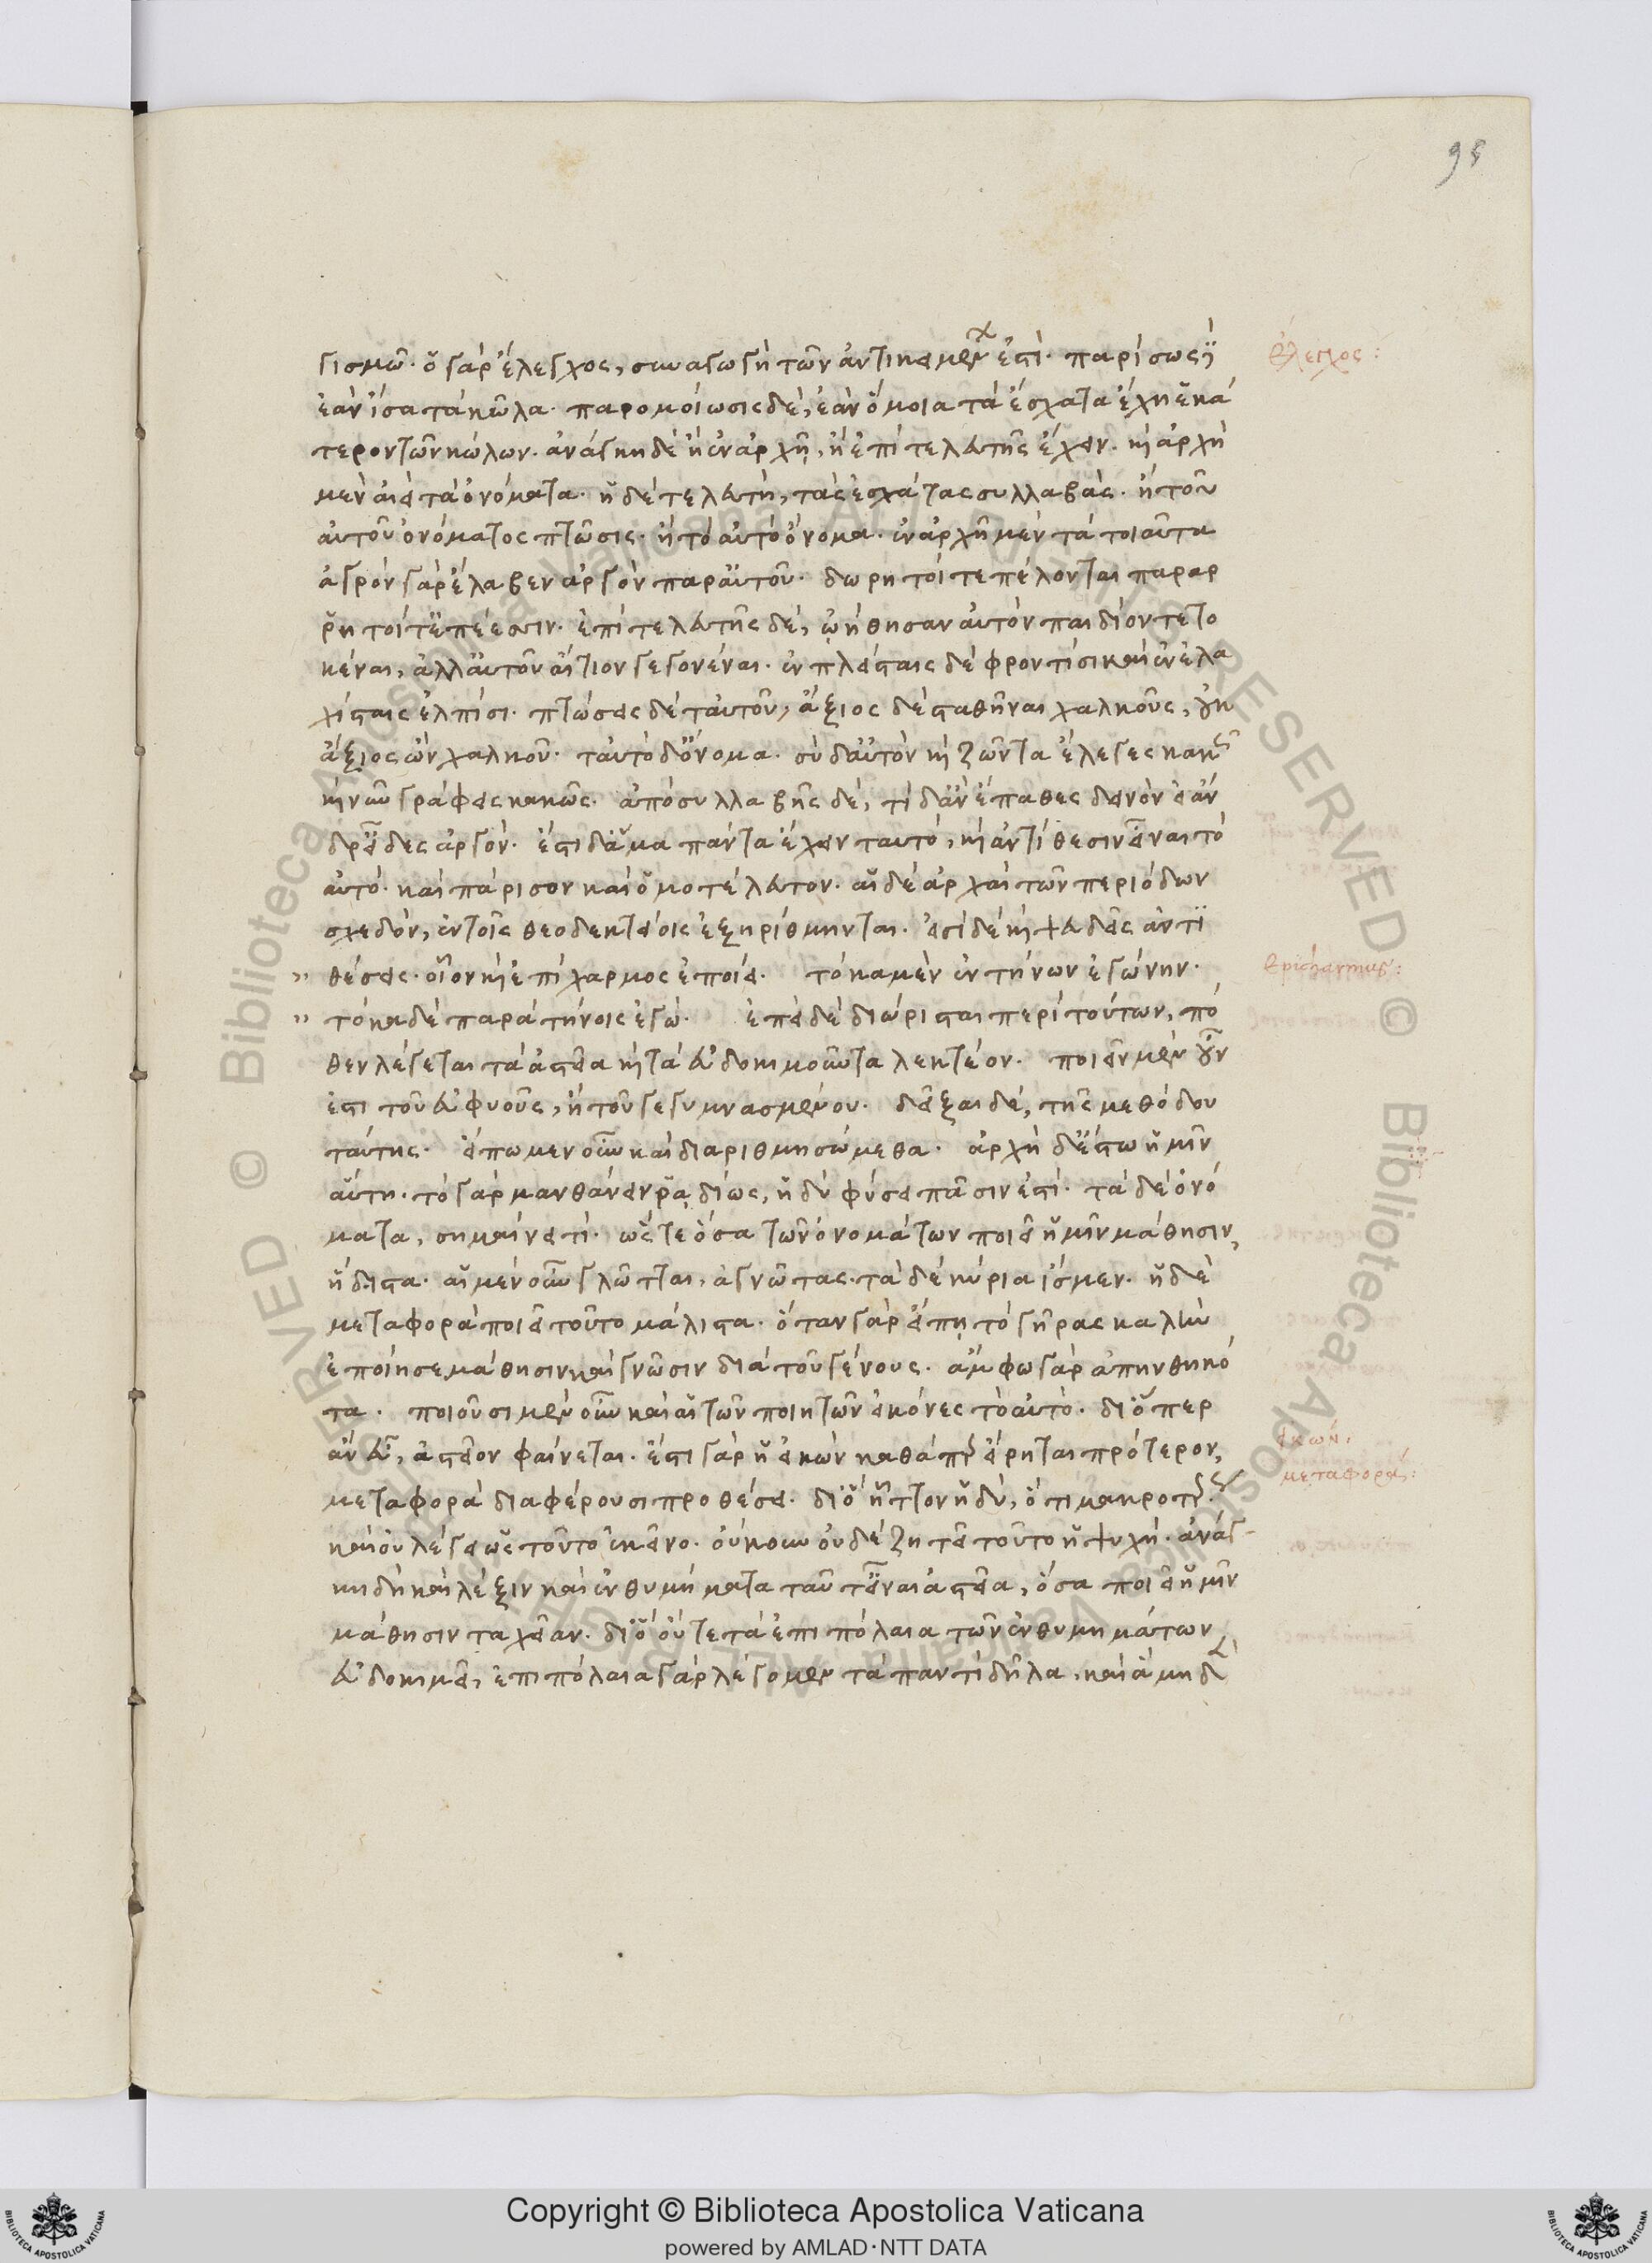 95
γισμῶ. ὁ γὰρ ἔλεγχος, συναγωγὴ τῶν ἀντικειμένων ἐστί. παρίσωσις
ἐὰν ἴσα τὰ κῶλα. παρομοίωσις δὲ, ἐὰν ὅμοια τὰ ἔσχατα ἔχῃ ἑκά
τερον τῶν κώλων. ἀνάγκη δὲ ἢ ἐν ἀρχῇ, ἢ ἐπὶ τελευτῆς ἔχειν. καὶ ἀρχὴ
μὲν ἀεὶ τὰ ὀνόματα. ἡ δὲ τελευτὴ, τὰς ἐσχάτας συλλαβάς. ἢ τοῦ
αὐτοῦ ὀνόματος πτῶσις. ἢ τὸ αὐτὸ ὄνομα. ἐν ἀρχῇ μὲν τὰ τοιαῦτα
ἀγρὸν γὰρ ἔλαβεν ἀργὸν παρ' αὐτοῦ. δωρητοί τε πέλονται παραρ
ρητοί τ' ἐπέεσσιν. ἐπὶ τελευτῆς δὲ, ᾠήθησαν αὐτὸν παιδίον τετο
κέναι, ἀλλ' αὐτοῦ αἴτιον γεγονέναι. ἐν πλείσταις δὲ φροντίσι καὶ ἐν ἐλα
χίσταις ἐλπίσι. πτώσεις δὲ ταὐτοῦ, ἄξιος δὲ σταθῆναι χαλκοῦς, οὐκ
ἄξιος ὢν χαλκοῦ. ταὐτὸ δ' ὄνομα. σὺ δ' αὐτὸν καὶ ζῶντα ἔλεγες κακῶς
καὶ νῦν γράφεις κακῶς. ἀπὸ συλλαβῆς δὲ, τί δ' ἂν ἔπαθες δεινὸν εἰ ἄν
δρ' εἶδες ἀργόν. ἔστι δ' ἅμα πάντα ἔχειν ταυτὸ, καὶ ἀντίθεσιν εἶναι τὸ
αὐτὸ. καὶ πάρισον καὶ ὁμοτέλευτον. αἱ δὲ ἀρχαὶ τῶν περιόδων
σχεδὸν, ἐν τοῖς θεοδεκτείοις ἐξηρίθμηνται. εἰσὶ δὲ καὶ ψευδεῖς ἀντι
» θέσεις. οἷον καὶ ἐπίχαρμος ἐποίει. τόκα μὲν ἐν τήνων ἐγώνην.
» τόκα δὲ παρὰ τήνοις ἐγώ. ἐπεὶ δὲ διώρισται περὶ τούτων, πό
θεν λέγεται τὰ ἀστεῖα καὶ τὰ εὐδοκιμοῦντα λεκτέον. ποιεῖν μὲν οὖν
ἐστι τοῦ εὐφυοῦς, ἢ τοῦ γεγυμνασμένου. δεῖξαι δὲ, τῆς μεθόδου
ταύτης. εἴπωμεν οὖν καὶ διαριθμησώμεθα. ἀρχὴ δ' ἔστω ἡμῖν
αὕτη. τὸ γὰρ μανθάνειν ῥᾳδίως, ἡδὺ φύσει πᾶσιν ἐστί. τὰ δὲ ὀνό
ματα, σημαίνει τὶ. ὥστε ὅσα τῶν ὀνομάτων ποιεῖ ἡμῖν μάθησιν,
ἥδιστα. αἱ μὲν οὖν γλῶτται, ἀγνῶτας. τὰ δὲ κύρια ἴσμεν. ἡ δὲ
μεταφορὰ ποιεῖ τοῦτο μάλιστα. ὅταν γὰρ εἴπῃ τὸ γῆρας καλὴν
ἐποίησε μάθησιν καὶ γνῶσιν διὰ τοῦ γένους. ἄμφω γὰρ ἀπηνθηκό
τα. ποιοῦσι μὲν οὖν καὶ αἱ τῶν ποιητῶν εἰκόνες τὸ αὐτὸ. διόπερ
ἂν εὖ, ἀστεῖον φαίνεται. ἔστι γὰρ ἡ εἰκὼν καθάπερ εἴρηται πρότερον,
μεταφορὰ διαφέρουσι προθέσει. διὸ ἧττον ἡδὺ, ὅτι μακροτέρως
καὶ οὐ λέγει ὡς τοῦτο ἐκεῖνο. οὐκοῦν οὐδὲ ζητεῖ τοῦτο ἡ ψυχή. ἀνάγ-
κη δὴ καὶ λέξιν καὶ ἐνθυμήματα ταῦτ' εἶναι ἀστεῖα, ὅσα ποιεῖ ἡμῖν
μάθησιν ταχεῖαν. διὸ οὔτε τὰ ἐπιπόλαια τῶν ἐνθυμημάτων
εὐδοκιμεῖ, ἐπιπόλαια γὰρ λέγομεν τὰ παντὶ δῆλα, καὶ ἃ μηδὲν
ἔλεγχος:
Epicharmus:
εἰκών.
μεταφορά:
Copyright © Biblioteca Apostolica Vaticana
powered by AMLAD·NTT DATA